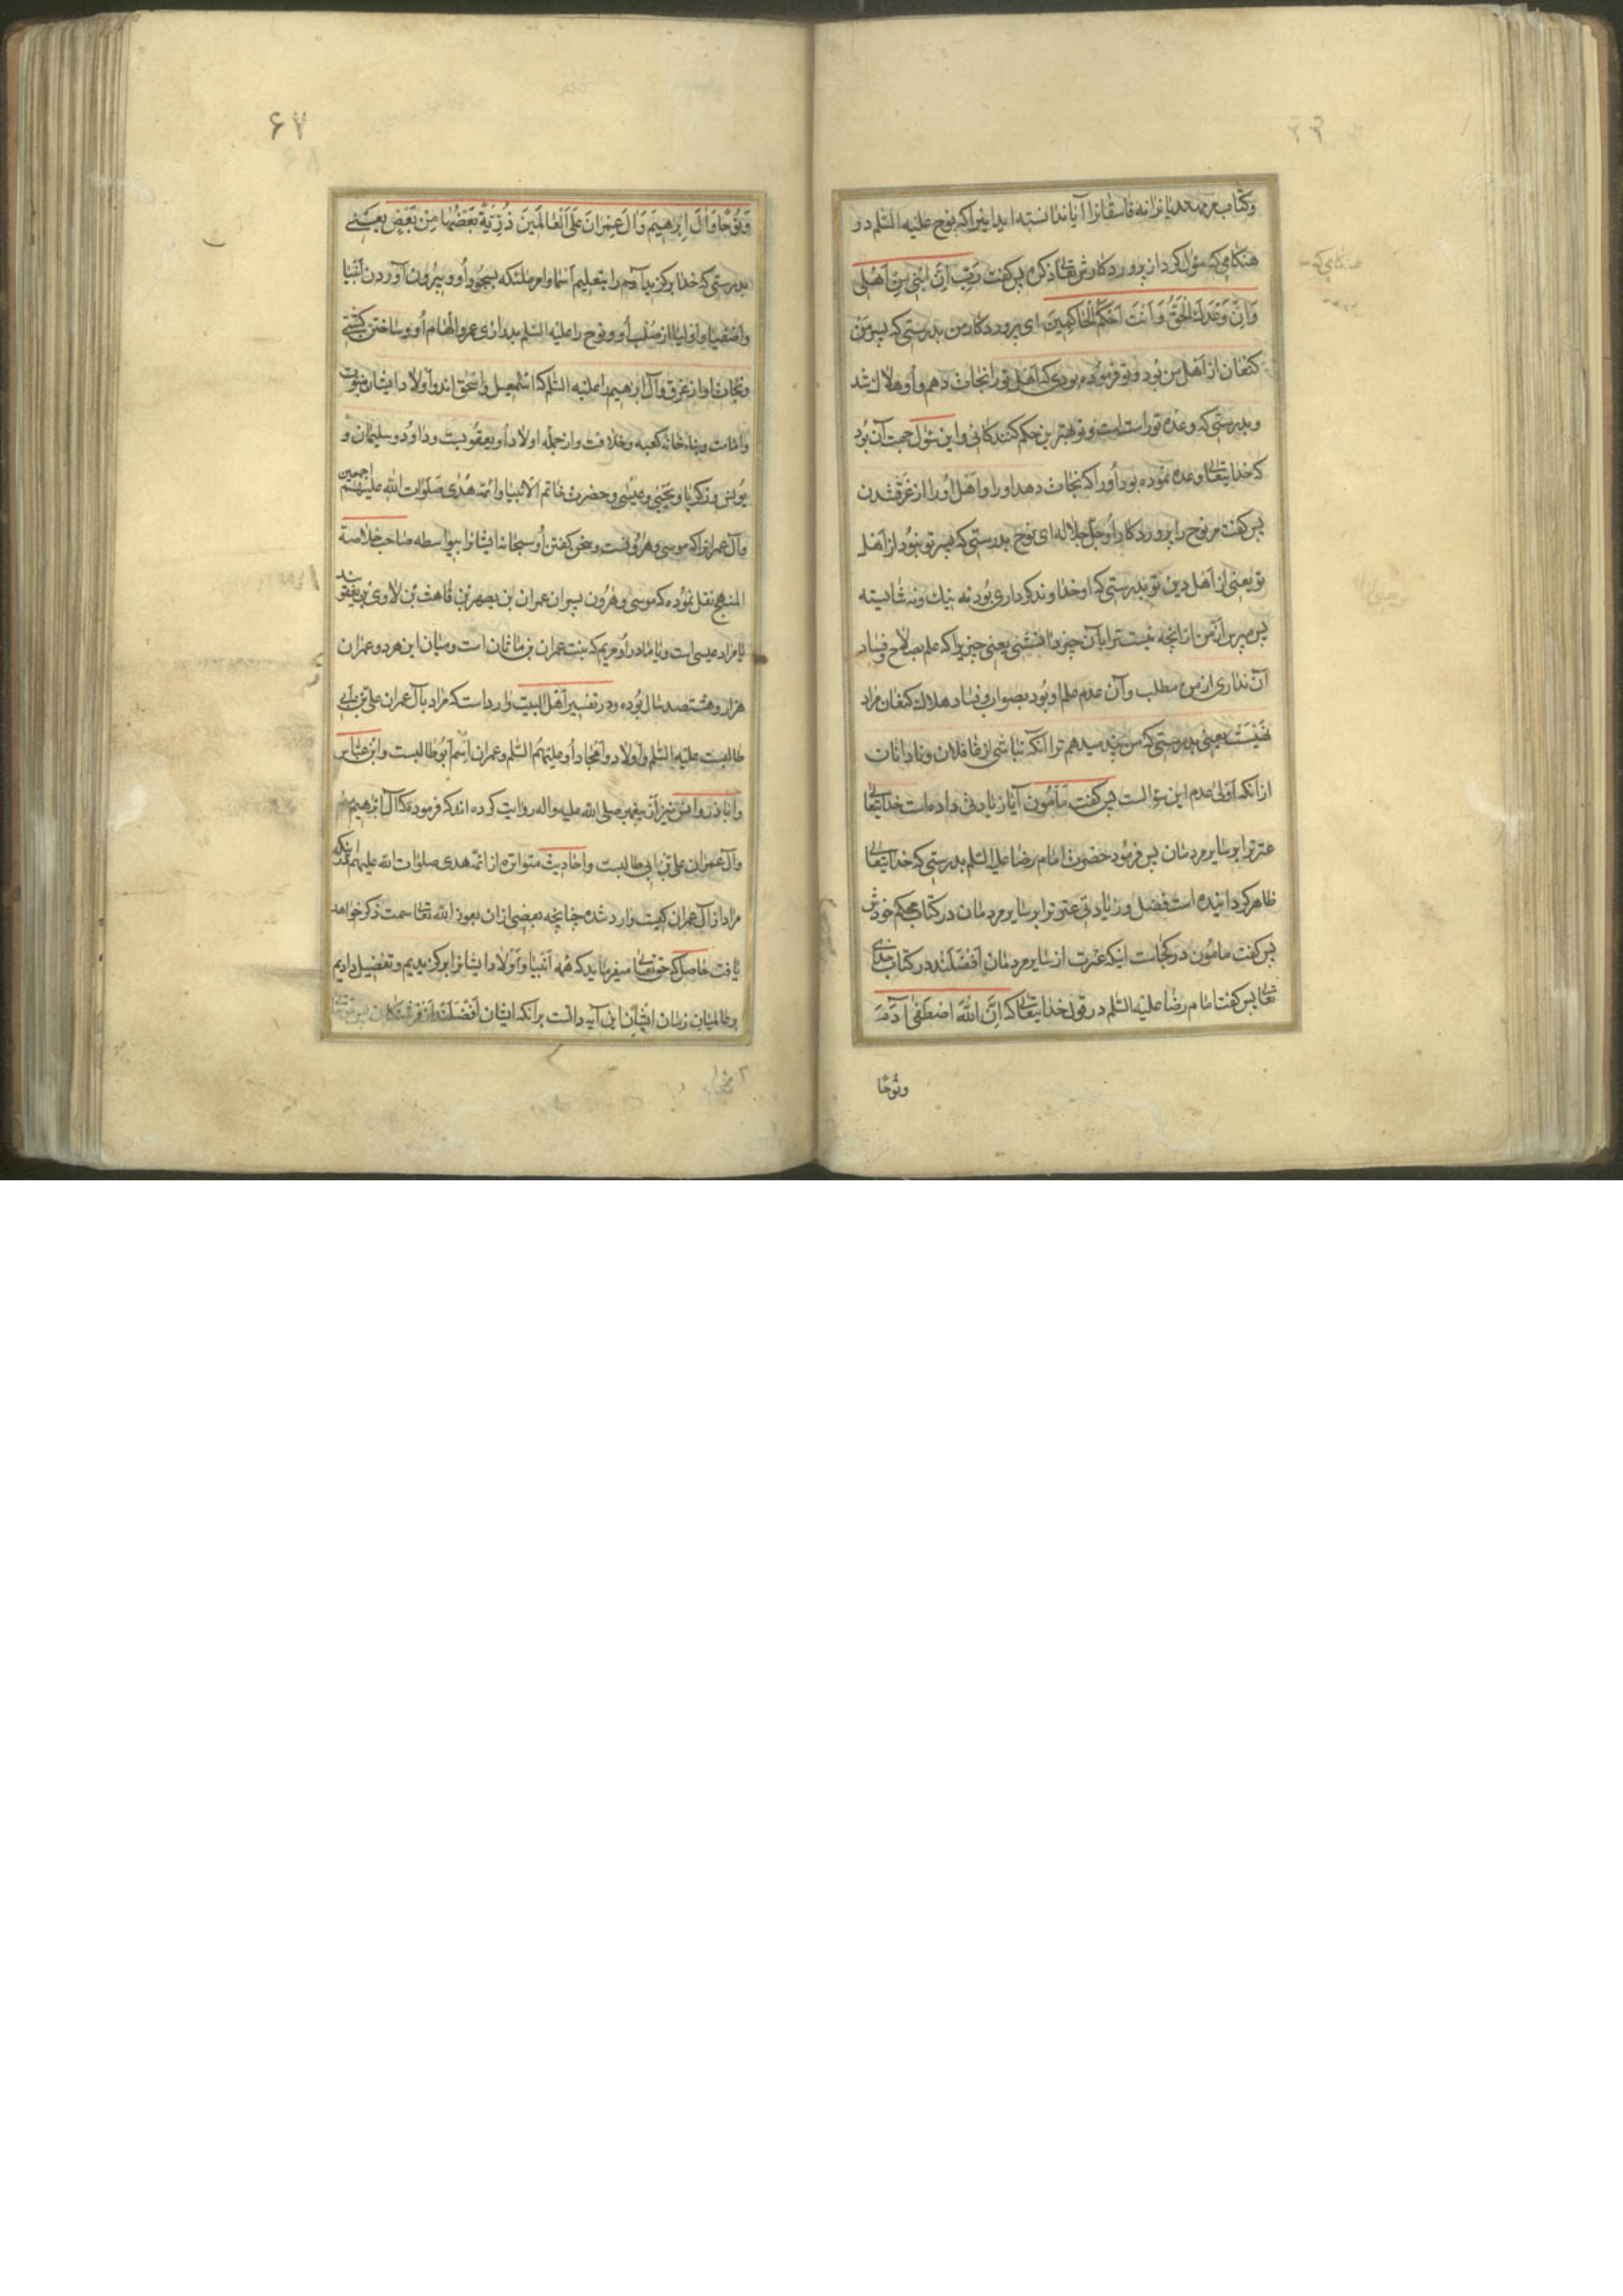 وکتاب مر مهتدیانرا نه فاسقانرا آیا ندانسته اید اینرا که نوح علیه السّلم در
هنکامی که سؤال کرد از پروردکارش تعالی ذکره پس کفت رَبِّ اِنَّ ابْنی مِنْ اَهْلی
وَاِنَّ وَعْدَكَ الْحَقُّ وَاَنْتَ اَحْکَمُ الْحٰاکِمینَ ای پروردکار من بدرستی که پسر من
کنعان از اهل من بود و تو فرموده بودی که اهل تو را نجات دهم و او هلاك شد
و بدرستی که وعده تو راست است و تو بهترین حکم کنندکانی و این سؤال جهت آن بود
که خدایتعالی وعده نموده بود او را که نجات دهد او را و اهل او را از غرق شدن
پس کفت مر نوح را پروردکار او جلّ جلاله ای نوح بدرستی که پسر تو نبود از اهل
تو یعنی از اهل دین تو بدرستی که او خداوند کرداری بود نه نیك و نه شایسته
پس مپرس از من از انچه نیست ترا بآن چیز دانشی یعنی چیزیرا که علم بصلاح و فساد
آن نداری از من مطلب و آن عدم علم او بود بصواب و فساد هلاك کنعان مراد
نیست یعنی بدرستی که من پند میدهم ترا آنکه نباشی از غافلان و نادانان
از آنکه اولی عدم این سؤالست پس کفت مأمون آیا زیادتی داده است خدایتعالی
عترترا بر سایر مردمان پس فرمود حضرت امام رضا علیه السّلم بدرستی که خدایتعالی
ظاهر کردانیده است فضل و زیادتی عترترا بر سایر مردمان در کتاب محکم خودش
پس کفت مامون در کجاست اینکه عترت از سایر مردمان افضلند در کتاب خدای
تعالی پس کفت امام رضا علیه السّلم در قول خدایتعالی که اِنَّ اللّٰهَ اصْطَفٰی آدَمَ
ونُوحًا
۶۷
وَنُوحًا وَاٰلَ اِبْرٰهیمَ وَاٰلَ عِمْرٰانَ عَلَی الْعٰالَمینَ ذُرِّیَّةً بَعْضُهٰا مِنْ بَعْضٍ یعنی
بدرستی که خدا برکزید آدم را بتعلیم اسما و امر ملئکه بسجود او و بیرون آوردن انبیا
و اصفیا و اولیا از صلب او و نوح را علیه السّلم بدرازی عمر و الهام او و ساختن کشتی
و نجات او از غرق و آل ابرهیم را علیه السّلم که اسمعیل و اسحق اند و اولاد ایشان بنبوت
و امامت و بناء خانه کعبه و خلافت و از جمله اولاد او یعقوبست و داود و سلیمان و
یونس و زکریا و یحیی و عیسی و حضرت خاتم الانبیا و ائمه هدی صلوات اللّه علیهم اجمعین
و آل عمرانرا که موسی و هرونست و سخن کفتن او سبحانه ایشانرا بیواسطه صاحب خلاصة
المنهج نقل نموده که موسی و هرون پسران عمران بن یصهر بن قاهث بن لاوی بن یعقوبند
یا مراد عیسی است و یا مادر او مریم که بنت عمران بن ماثان است و میان این هر دو عمران
هزار و هشتصد سال بوده و در تفسیر اهل البیت وارد است که مراد بآل عمران علی بن ابی
طالبست علیه السّلم و اولاد و امجاد او علیهم السّلم و عمران اسم ابو طالبست و ابن عباس
و اباذر و انس نیز از پیغمبر صلی اللّه علیه واله روایت کرده اند که فرمود که آل ابرهیم منم
و آل عمران علی بن ابی طالبست و احادیث متواتره از ائمه هدی صلوات اللّه علیهم که
مراد از آل عمران کیست وارد شده چنانچه بعضی از ان بعون اللّه تعالی سمت ذکر خواهد
یافت حاصل که حقتعالی میفرماید که همه انبیا و اولاد ایشانرا برکزیدیم و تفضیل دادیم
بر عالمیان زمان ایشان این آیه دالست برانکه ایشان افضلند از فرشتکان